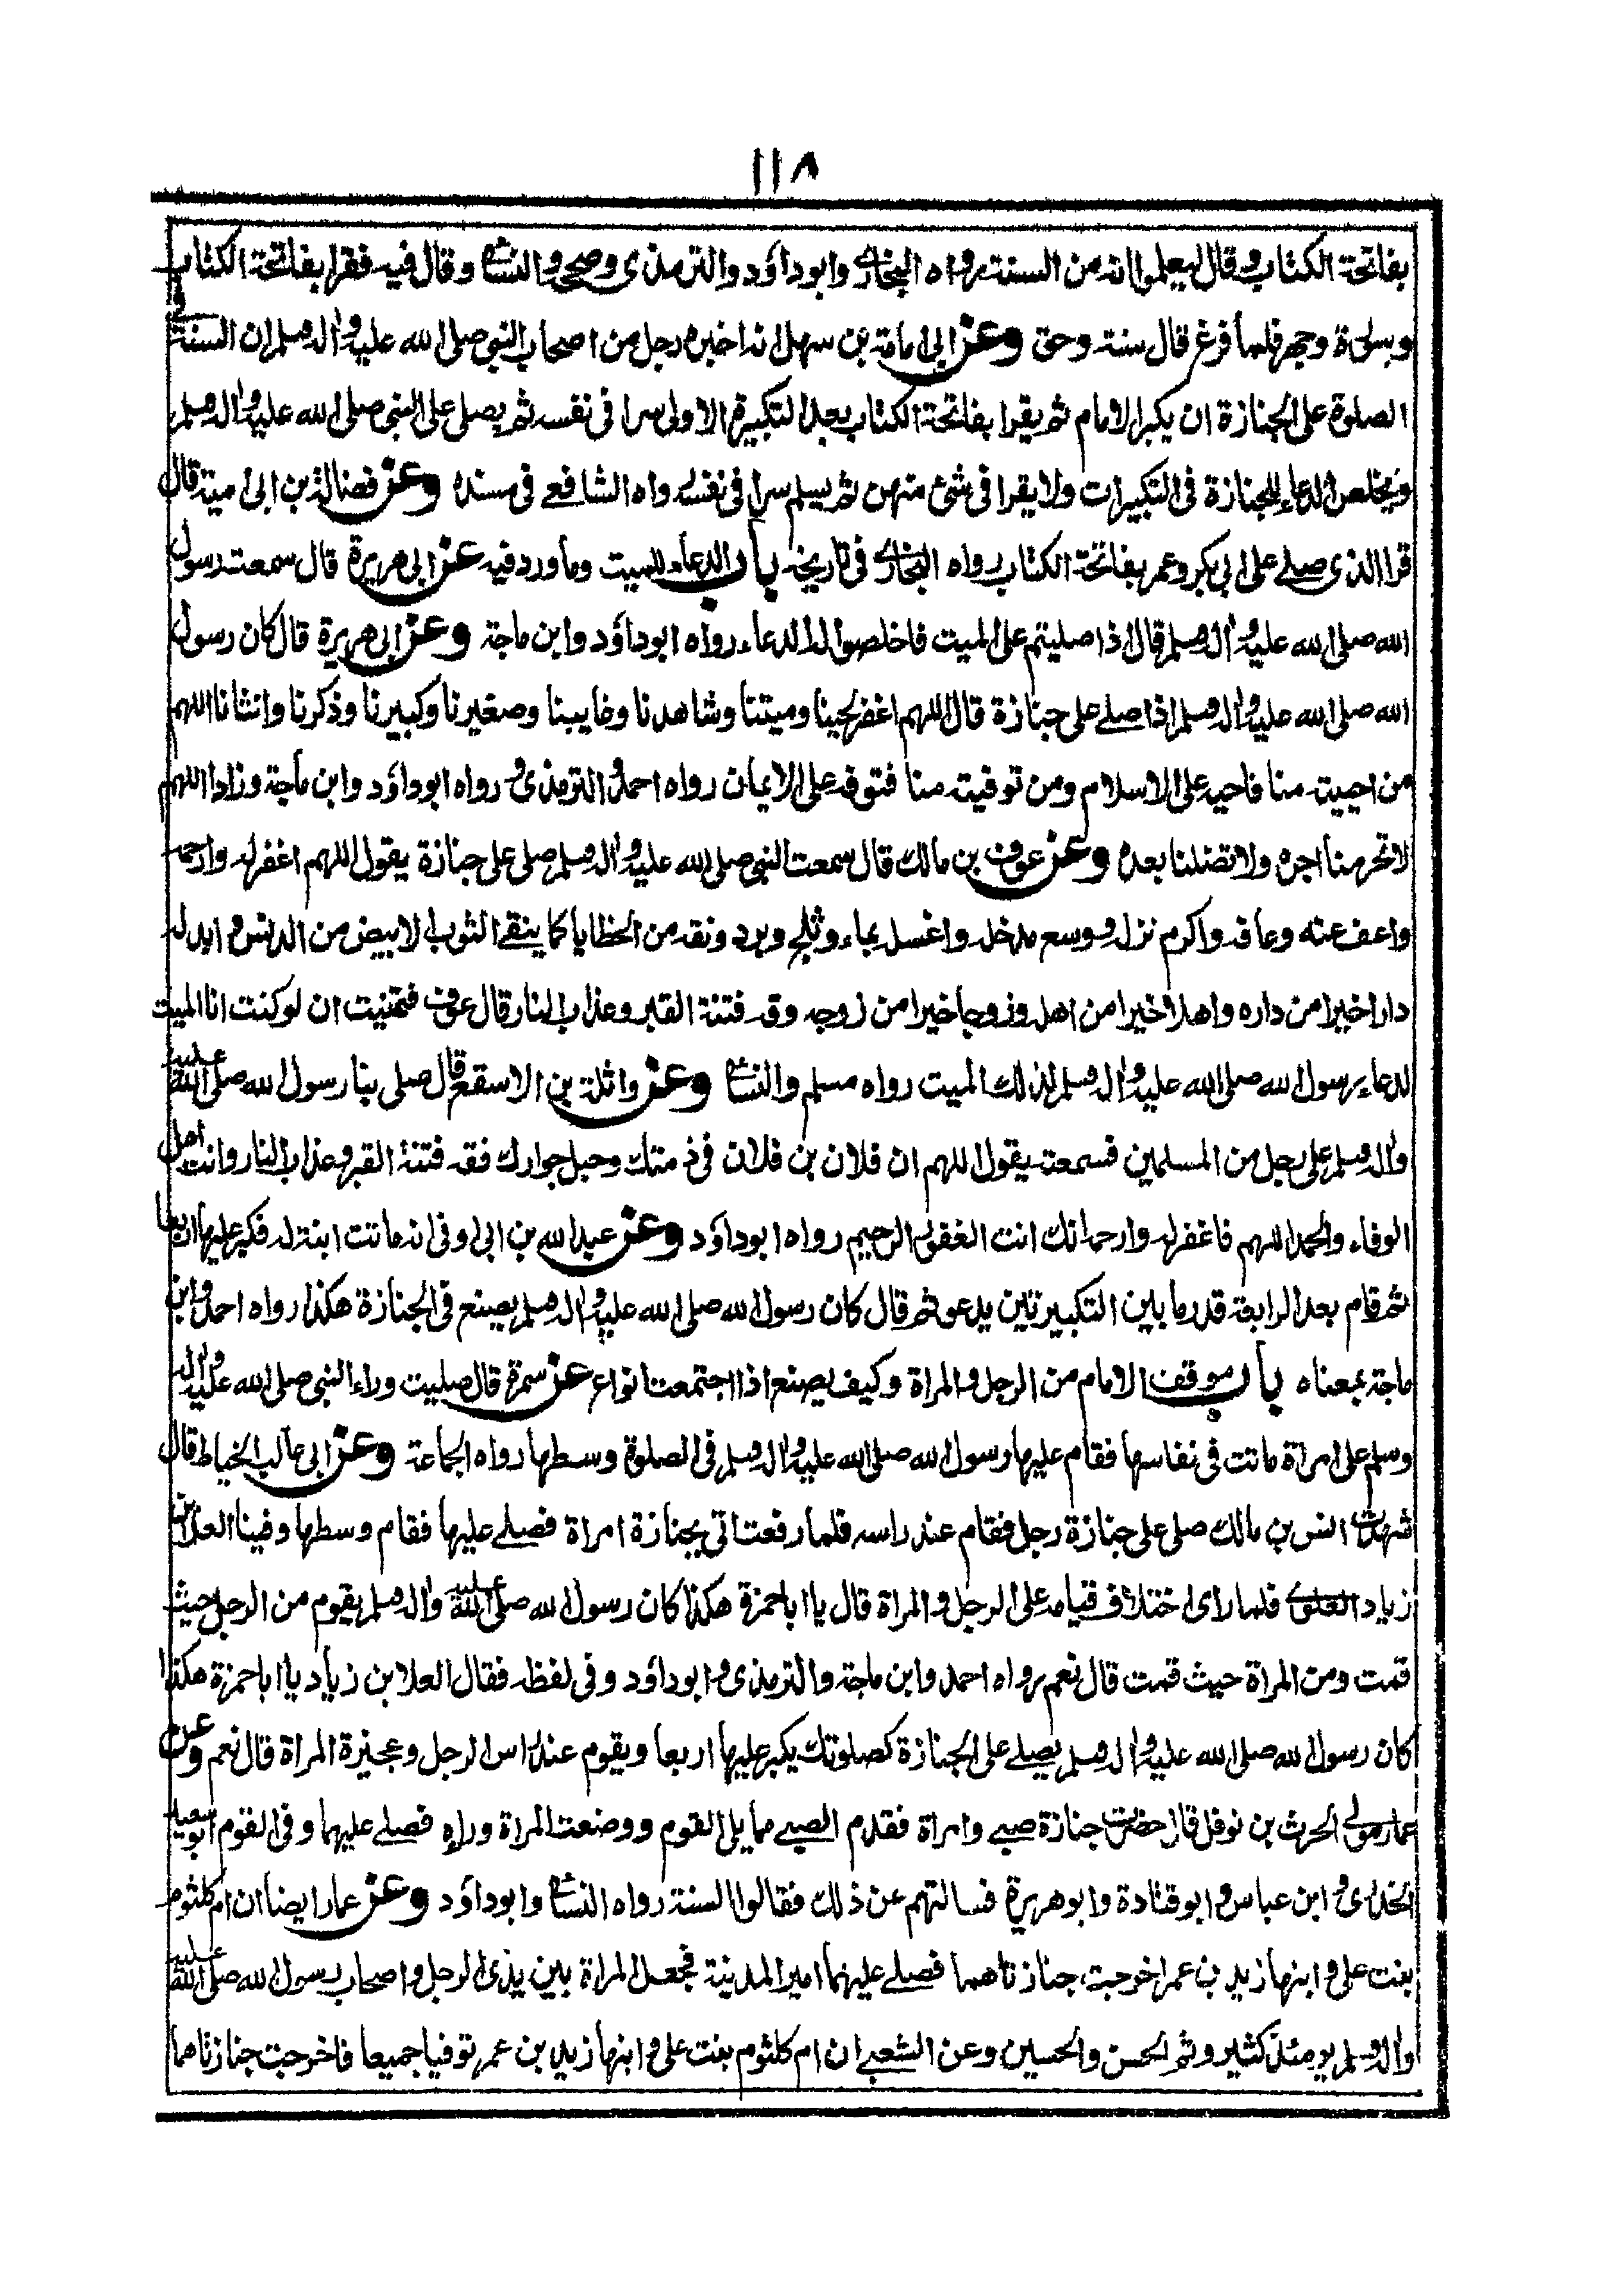 ١١٨
بفاتحة الكتاب وقال ليعلموا انه من السنة رواه البخاري وابوداؤد والترمذي وصححه والنسائي وقال فيه فقرا بفاتحة الكتاب
وسورة وجهر فلما فرغ قال سنة وحق وعن ابي امامة بن سهل انه اخبره رجل من اصحاب النبي صلى الله عليه واله وسلم ان السنة في
الصلوة على الجنازة ان يكبر الامام ثم يقرا بفاتحة الكتاب بعد التكبيرة الاولى سرا في نفسه ثم يصلي على النبي صلى الله عليه واله وسلم
ويخلص الدعاء للجنازة في التكبيرات ولا يقرا في شئ منهن ثم يسلم سرا في نفسه رواه الشافعي في مسنده وعن فضالة بن ابي امية قال
قرا الذي صلى على ابي بكر وعمر بفاتحة الكتاب رواه البخاري في تاريخه باب الدعاء للميت وما ورد فيه عن ابي هريرة قال سمعت رسول
الله صلى الله عليه واله وسلم قال اذا صليتم على الميت فاخلصوا له الدعاء رواه ابوداؤد وابن ماجة وعن ابي هريرة قال كان رسول
الله صلى الله عليه واله وسلم اذا صلى على جنازة قال اللهم اغفر لحينا وميتنا وشاهدنا وغايبنا وصغيرنا وكبيرنا وذكرنا وانثانا اللهم
من احييته منا فاحيه على الاسلام ومن توفيته منا فتوفه على الايمان رواه احمد والترمذي ورواه ابوداؤد وابن ماجة وزادا اللهم
لا تحرمنا اجره ولا تضلنا بعده وعن عوف بن مالك قال سمعت النبي صلى الله عليه واله وسلم صلى على جنازة يقول اللهم اغفر له وارحمه
واعف عنه وعافه واكرم نزله ووسع مدخله واغسله بماء وثلج وبرد ونقه من الخطايا كما ينقى الثوب الابيض من الدنس وابدله
دارا خيرا من داره واهلا خيرا من اهله وزوجا خيرا من زوجه وقه فتنة القبر وعذاب النار قال عوف فتمنيت ان لو كنت انا الميت
لدعاء رسول الله صلى الله عليه واله وسلم لذلك الميت رواه مسلم والنسائي وعن واثلة بن الاسقع قال صلى بنا رسول الله صلى الله عليه
واله وسلم على رجل من المسلمين فسمعته يقول اللهم ان فلان بن فلان في ذمتك وحبل جوارك فقه فتنة القبر وعذاب النار وانت اهل
الوفاء والحمد اللهم فاغفر له وارحمه انك انت الغفور الرحيم رواه ابوداؤد وعن عبد الله بن ابي اوفى انه ماتت ابنة له فكبر عليها اربعا
ثم قام بعد الرابعة قدر ما بين التكبيرتين يدعو ثم قال كان رسول الله صلى الله عليه واله وسلم يصنع في الجنازة هكذا رواه احمد وابن
ماجة بمعناه باب موقف الامام من الرجل والمراة وكيف يصنع اذا اجتمعت انواع عن سمرة قال صليت وراء النبي صلى الله عليه واله
وسلم على امراة ماتت في نفاسها فقام عليها رسول الله صلى الله عليه واله وسلم في الصلوة وسطها رواه الجماعة وعن ابي غالب الخياط قال
شهدت انس بن مالك صلى على جنازة رجل فقام عند راسه فلما رفعت اتي بجنازة امراة فصلى عليها فقام وسطها وفينا العلا بن
زياد العلوي فلما راى اختلاف قيامه على الرجل والمراة قال يا ابا حمزة هكذا كان رسول الله صلى الله عليه واله وسلم يقوم من الرجل حيث
قمت ومن المراة حيث قمت قال نعم رواه احمد وابن ماجة والترمذي وابوداؤد وفي لفظه فقال العلا بن زياد يا ابا حمزة هكذا
كان رسول الله صلى الله عليه واله وسلم يصلي على الجنازة كصلوتك يكبر عليها اربعا ويقوم عند راس الرجل وعجيزة المراة قال نعم وعن
عمار مولى الحرث بن نوفل قال حضرت جنازة صبي وامراة فقدم الصبي مما يلي القوم ووضعت المراة وراه فصلى عليهما وفي القوم ابو سعيد
الخدري وابن عباس وابو قتادة وابو هريرة فسالتهم عن ذلك فقالوا السنة رواه النسائي وابوداؤد وعن عمار ايضا ان ام كلثوم
بنت علي وابنها زيد بن عمر اخرجت جنازتاهما فصلى عليهما امير المدينة فجعل المراة بين يدي الرجل واصحاب رسول الله صلى الله عليه
واله وسلم يومئذ كثير وثم الحسن والحسين وعن الشعبي ان ام كلثوم بنت علي وابنها زيد بن عمر توفيا جميعا فاخرجت جنازتاهما